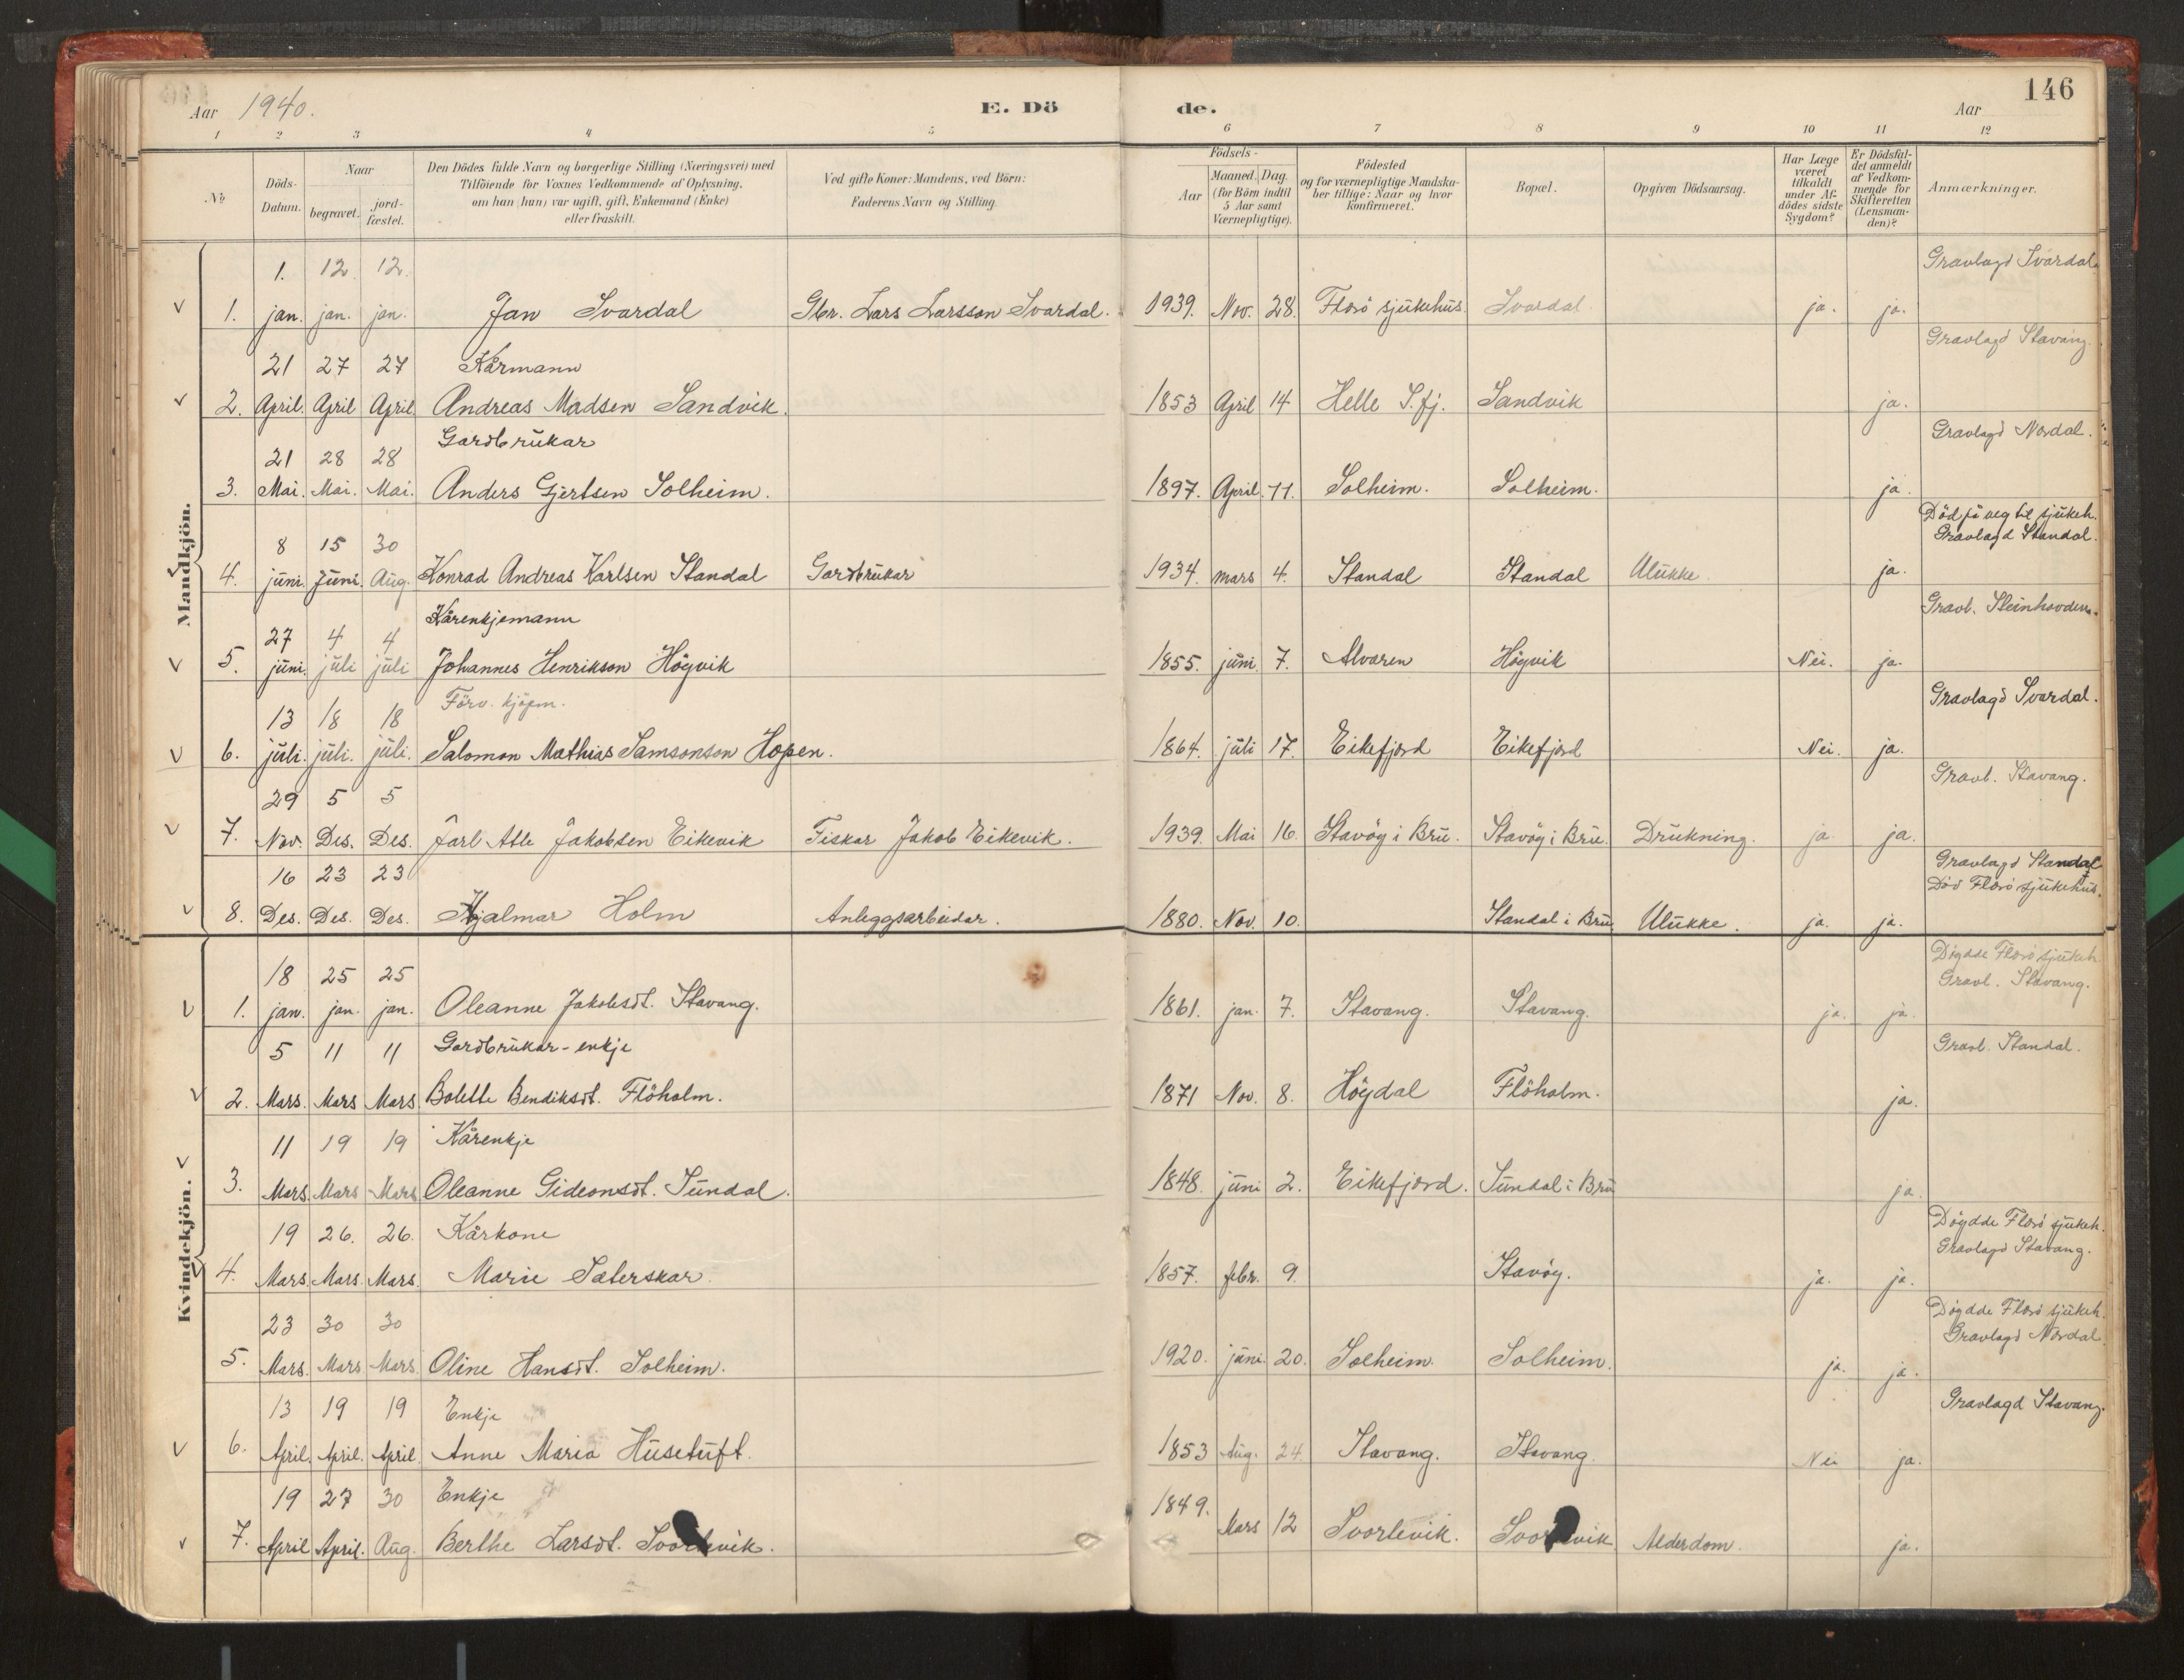 Aar 1940. E. Dö de. Aar 146
1 2 3 4 5 6 7 8 9 10 11 12
№ Döds-Datum. Naar begravet. jord-fæstet. Den Dödes fulde Navn og borgerlige Stilling (Næringsvei) med Tilföiende for Voxnes Vedkommende af Oplysning, om han (hun) var ugift, gift, Enkemand (Enke) eller fraskilt. Ved gifte Koner: Mandens, ved Börn: Faderens Navn og Stilling. Födsels- Aar Maaned. Dag. (for Börn indtil 5 Aar samt Værnepligtige). Födested og for værnepligtige Mandskaber tillige: Naar og hvor konfirmeret. Bopæl. Opgiven Dödsaarsag. Har Læge været tilkaldt under Afdödes sidste Sygdom? Er Dödsfaldet anmeldt af Vedkommende for Skifteretten (Lensmanden)? Anmærkninger.
Mandkjön.
1. 1. jan. 12 jan. 12. jan. Jan Svardal Gbr. Lars Larsson Svardal. 1939. Nov. 28. Florö sjukehus. Svardal. ja. ja. Gravlagd Svardal.
2. 21 April. 27 April 27 April Kårmann Andreas Madsen Sandvik. 1853 April 14 Helle S.fj. Sandvik ja. Gravlagd Stavang.
3. 21 Mai. 28 Mai. 28 Mai. Gardbrukar Anders Gjertsen Solheim. 1897. April 11. Solheim. Solheim. ja. Gravlagd Nordal.
4. 8 juni. 15 Juni. 30 Aug. Konrad Andreas Karlsen Standal Gardbrukar 1934. mars 4. Standal Standal Ulukke. ja. Död på veg til sjukeh. Gravlagd Standal.
5. 27 juni. 4 juli 4 juli Kårenkjemann Johannes Henrikson Högvik 1855. juni 7. Alvoren Högvik Nei. ja. Gravl. Steinhovden.
6. 13 juli. 18 juli. 18 juli. Förv. kjöpm. Salomon Mathias Samsonson Hopen. 1864. juli 17. Eikefjord Eikefjord Nei. ja. Gravlagd Svardal.
7. 29 Nov. 5 Des. 5 Des. Jarl Atle Jakobsen Eikevik Fiskar Jakob Eikevik. 1939. Mai 16. Stavöy i Bru. Stavöy i Bru. Drukning. ja ja. Gravl. Stavang.
8. 16 Des. 23 Des. 23 Des. Hjalmar Holm Anleggsarbeidar. 1880. Nov. 10. Standal i Bru Ulukke. ja. ja. Gravlagd Standal Död Florö sjukehus.
Kvindekjön.
1. 18 jan. 25 jan. 25 jan. Oleanne Jakobsdt. Stavang. 1861. jan. 7. Stavang. Stavang. ja. ja. Döydde Florö sjukeh Gravl. Stavang.
2. 5 Mars. 11 Mars 11 Mars Gardbrukar-enkje Bolette Bendiksdt. Flöholm. 1871 Nov. 8. Höydal Flöholm. ja. Gravl. Standal.
3. 11 Mars. 19 Mars 19 Mars Kårenkje Oleanne Gideonsdt. Sundal. 1848. juni 2. Eikefjord. Sundal i Bru ja.
4. 19 Mars. 26. Mars. 26. Mars. Kårkone Marie Sæterskar. 1857. febr. 9. Stavöy. ja. ja. Döydde Florö sjukeh. Gravlagd Stavang.
5. 23 Mars. 30 Mars 30 Mars. Oline Hansdt. Solheim. 1920. juni. 20. Solheim. Solheim. ja. ja. Döydde Florö sjukeh. Gravlagd Nordal.
6. 13 April. 19 April. 19 April. Enkje Anne Maria Husetuft. 1853 Aug. 24 Stavang. Stavang. Nei ja. Gravlagd Stavang.
7. 19 April 27 April. 30 Aug. Enkje Berthe Larsdt. Svortevik. 1849. Mars 12 Svortevik. Svortevik. Alderdom. ja.